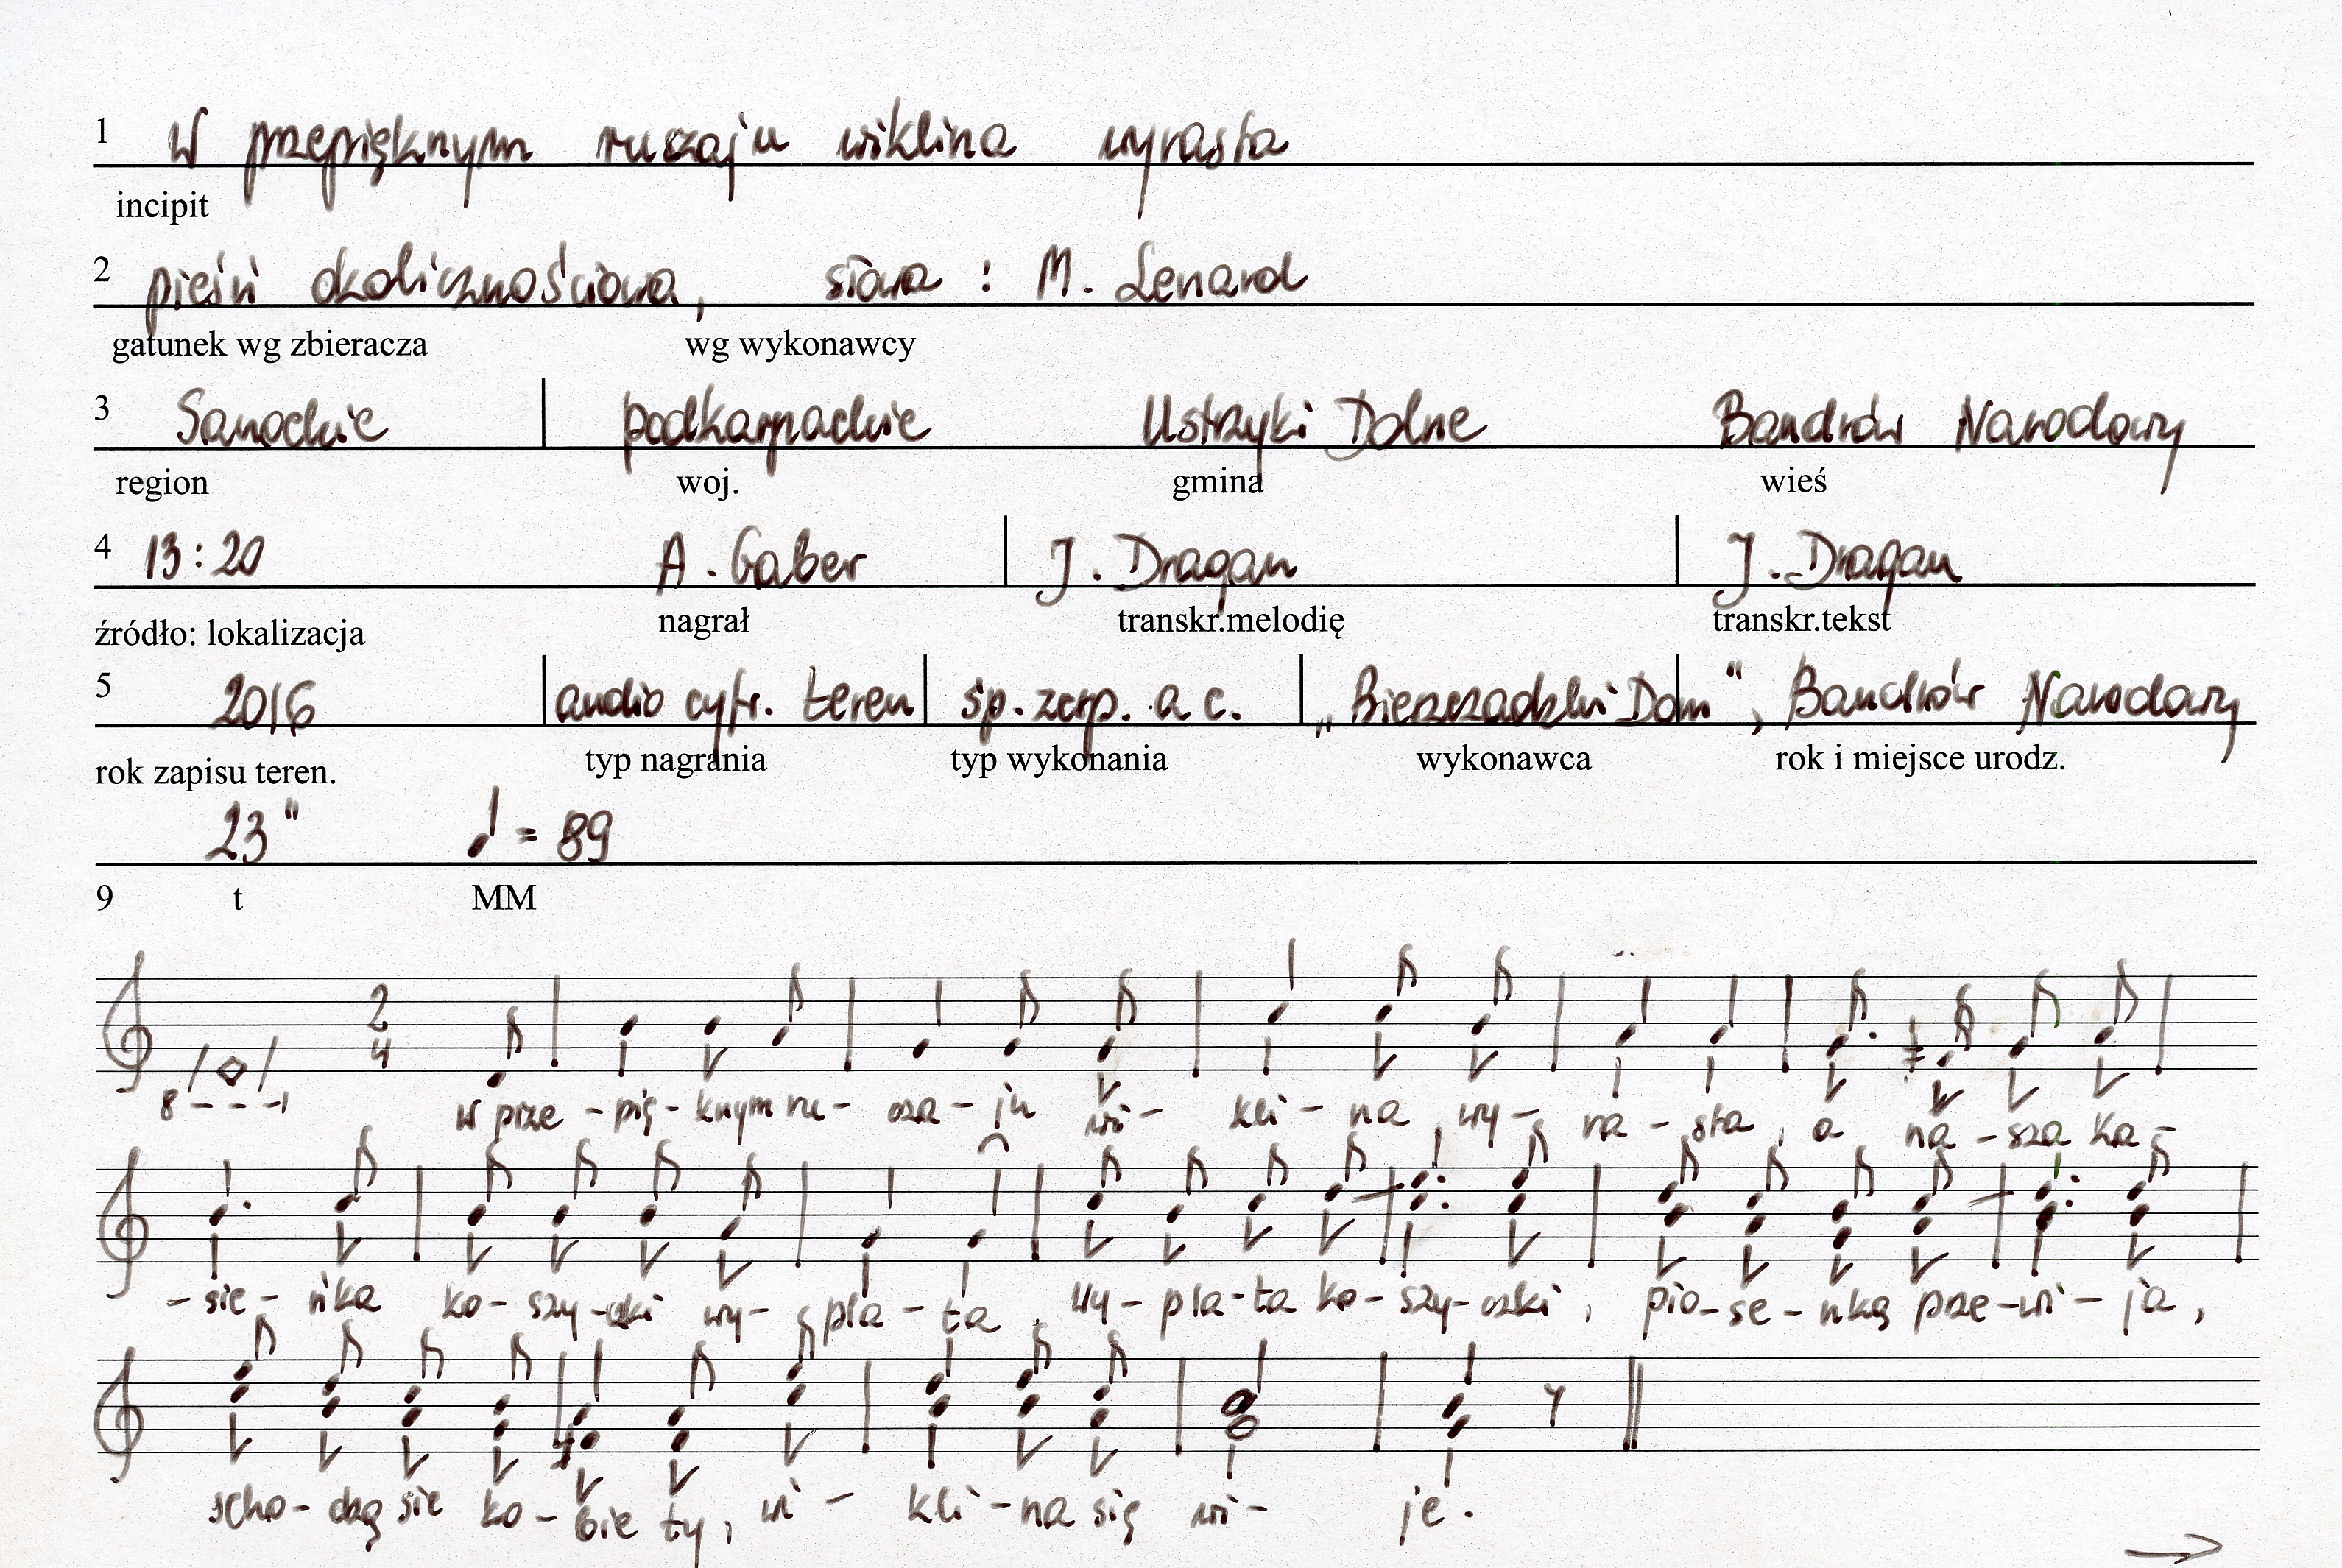 1 W przepięknym ruczaju wiklina wyrasta
incipit
2 pieśń okolicznościowa, słowa : M. Lenard
gatunek wg zbieracza wg wykonawcy
3 Sanockie podkarpackie Ustrzyki Dolne Bandrów Narodowy
region woj. gmina wieś
4 13:20 A. Gaber J. Dragan J. Dragan
źródło: lokalizacja nagrał transkr.melodię transkr.tekst
5 2016 audio cyfr. teren śp. zesp. a c. „Bieszczadzki Dom", Bandrów Narodowy
rok zapisu teren. typ nagrania typ wykonania wykonawca rok i miejsce urodz.
23" ♩ = 89
9 t MM
2
4
8 - - - ┐
W prze - pię - knym ru - cza - ju wi - kli - na wy - ra - sta, a na - sza ka -
- sie - ńka ko - szy - czki wy - pla - ta, wy - pla - ta ko - szy - czki, pio - se - nką prze - wi - ja,
scho - dzą sie ko - bie ty, wi - kli - na się wi - je.